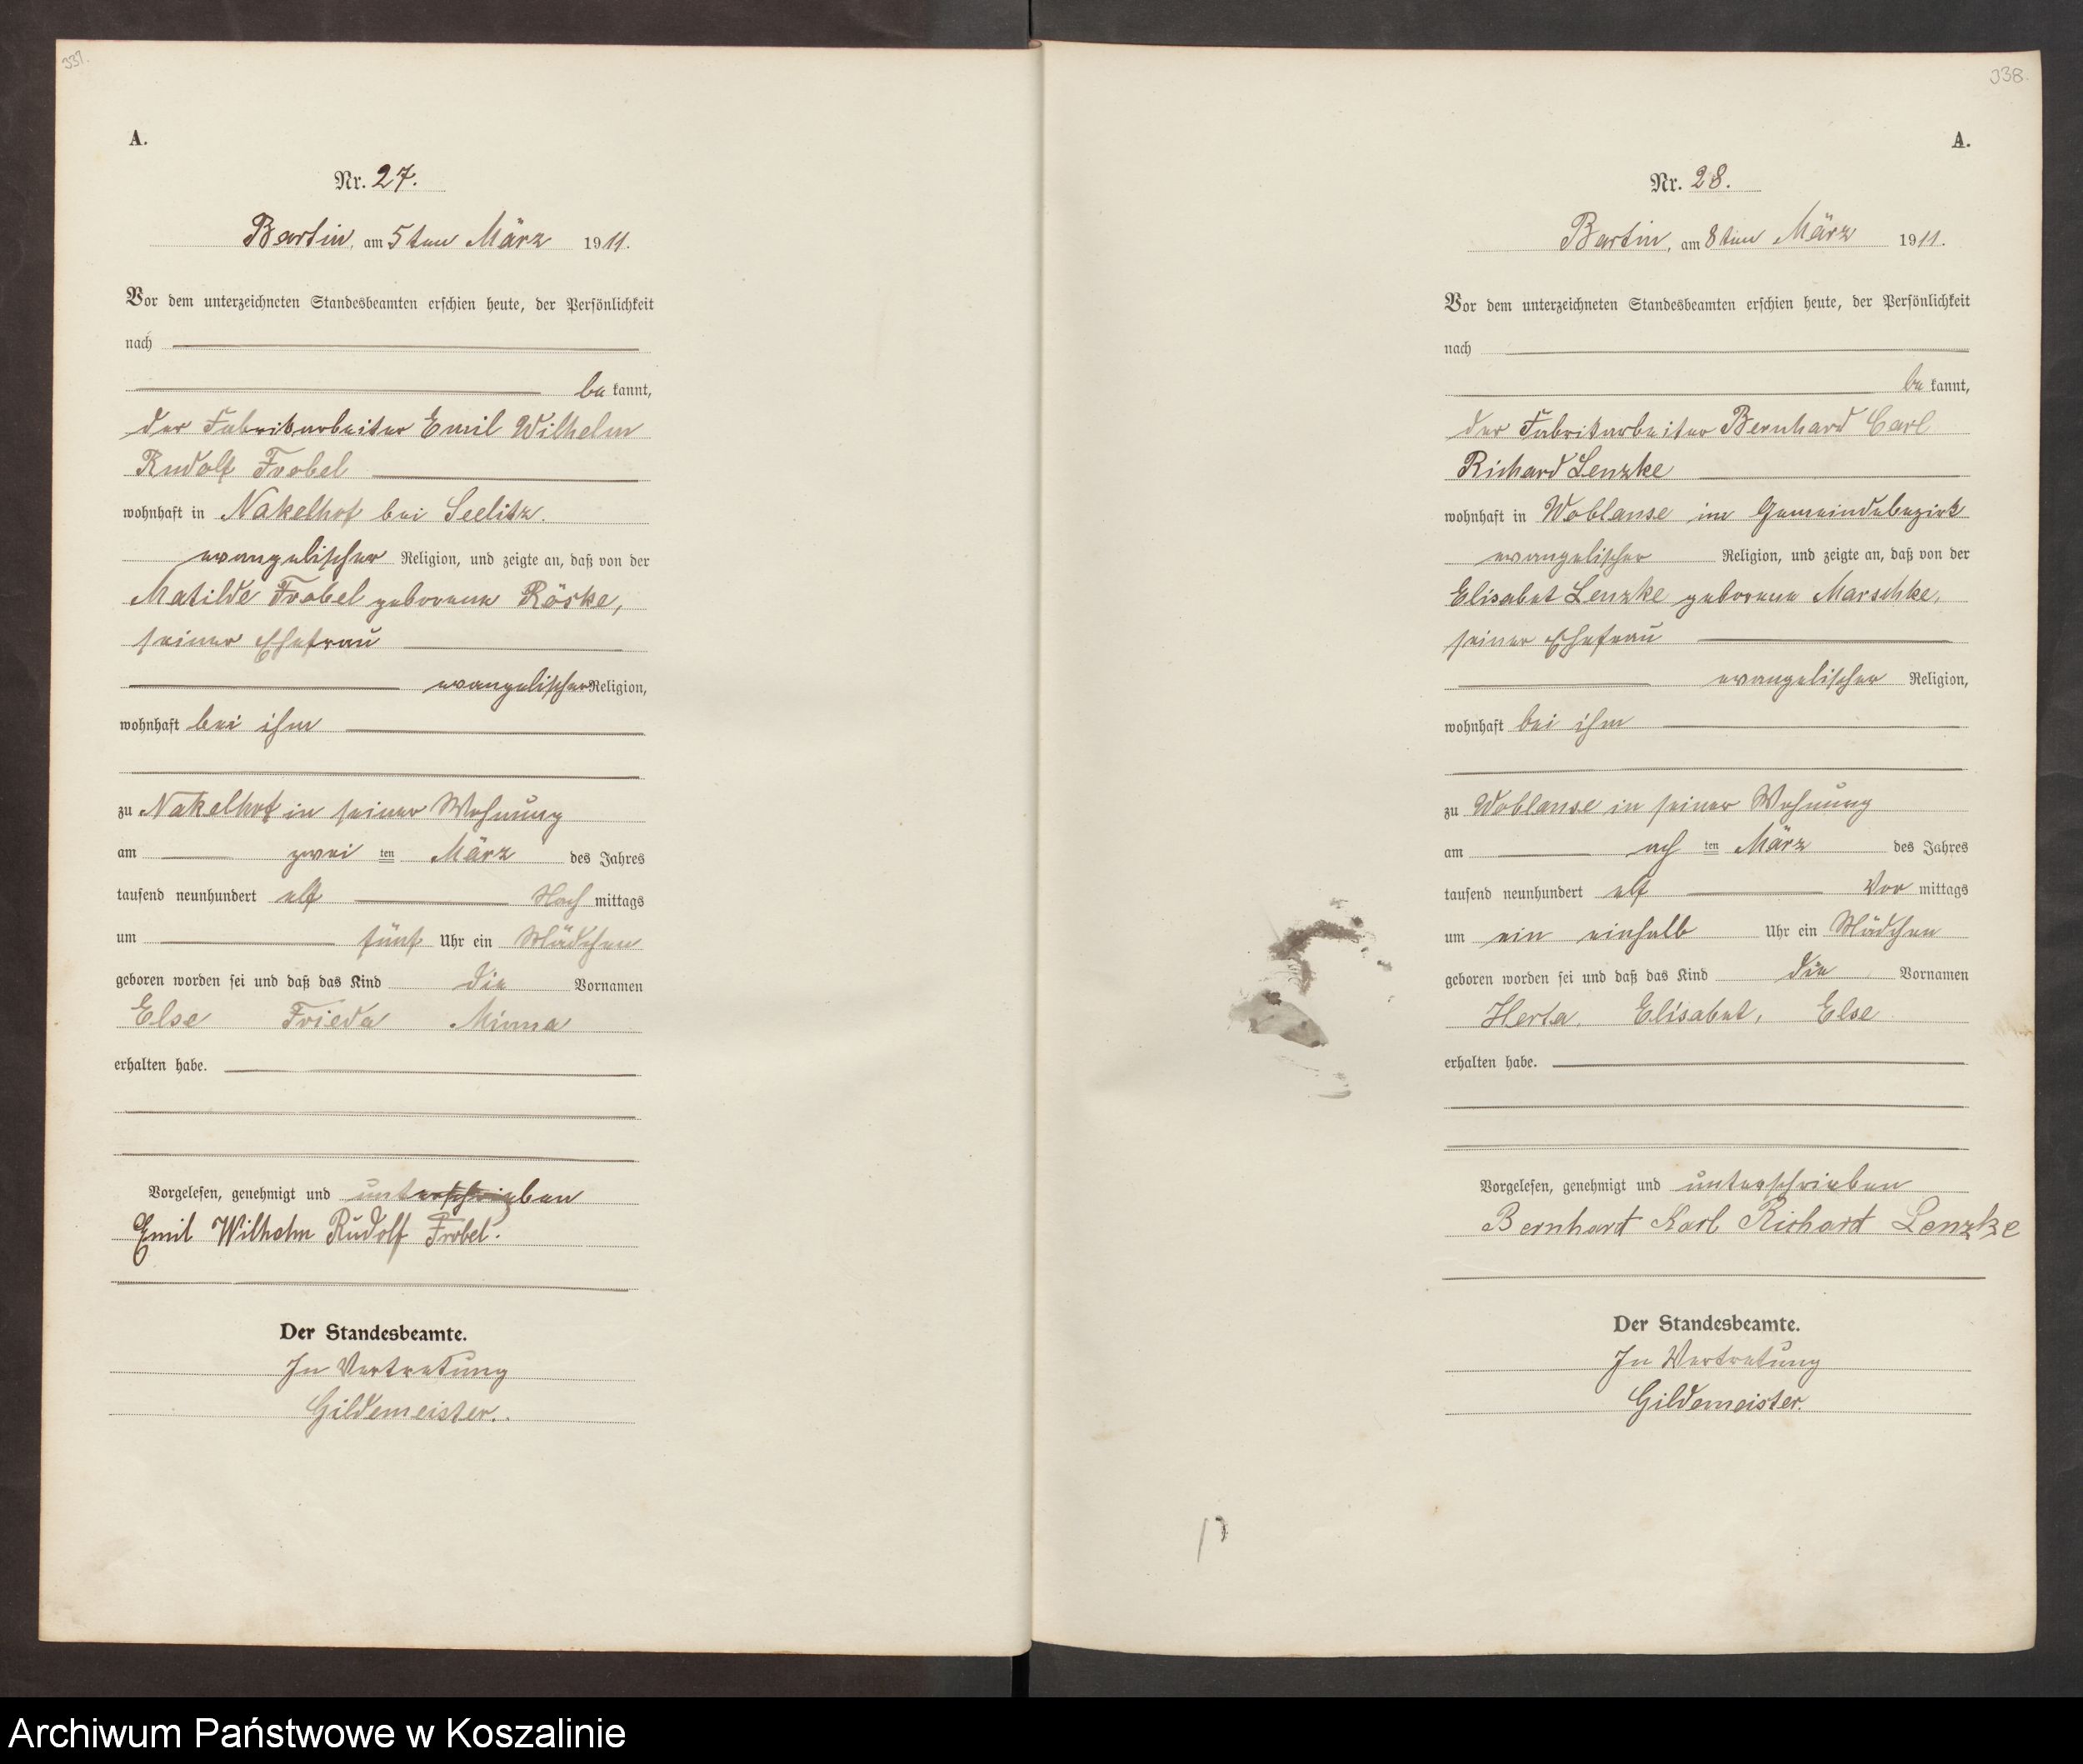 337.
A.
Nr. 27.
Bartin, am 5ten März 1911.
Vor dem unterzeichneten Standesbeamten erschien heute, der Persönlichkeit
nach
be kannt,
der Fabrikarbeiter Emil Wilhelm
Rudolf Frobel
wohnhaft in Nakelhof bei Seelitz.
evangelischer Religion, und zeigte an, daß von der
Matilde Frobel geborene Röske,
seiner Ehefrau
evangelischer Religion,
wohnhaft bei ihm
zu Nakelhof in seiner Wohnung
am zwei ten März des Jahres
tausend neunhundert elf Nach mittags
um fünf Uhr ein Mädchen
geboren worden sei und daß das Kind die Vornamen
Else Frieda Minna
erhalten habe.
Vorgelesen, genehmigt und unterschrieben
Emil Wilhelm Rudolf Frobel.
Der Standesbeamte.
In Vertretung
Gildemeister.
338.
A.
Nr. 28.
Bartin, am 8ten März 1911.
Vor dem unterzeichneten Standesbeamten erschien heute, der Persönlichkeit
nach
be kannt,
der Fabrikarbeiter Bernhard Carl
Richard Lenzke
wohnhaft in Woblanse im Gemeindebezirk
evangelischer Religion, und zeigte an, daß von der
Elisabet Lenzke geborene Marschke,
seiner Ehefrau
evangelischer Religion,
wohnhaft bei ihm
zu Woblanse in seiner Wohnung
am ach ten März des Jahres
tausend neunhundert elf Vor mittags
um ein einhalb Uhr ein Mädchen
geboren worden sei und daß das Kind die Vornamen
Herta, Elisabet, Else
erhalten habe.
Vorgelesen, genehmigt und unterschrieben
Bernhart Karl Richart Lenzke
Der Standesbeamte.
In Vertretung
Gildemeister.
Archiwum Państwowe w Koszalinie